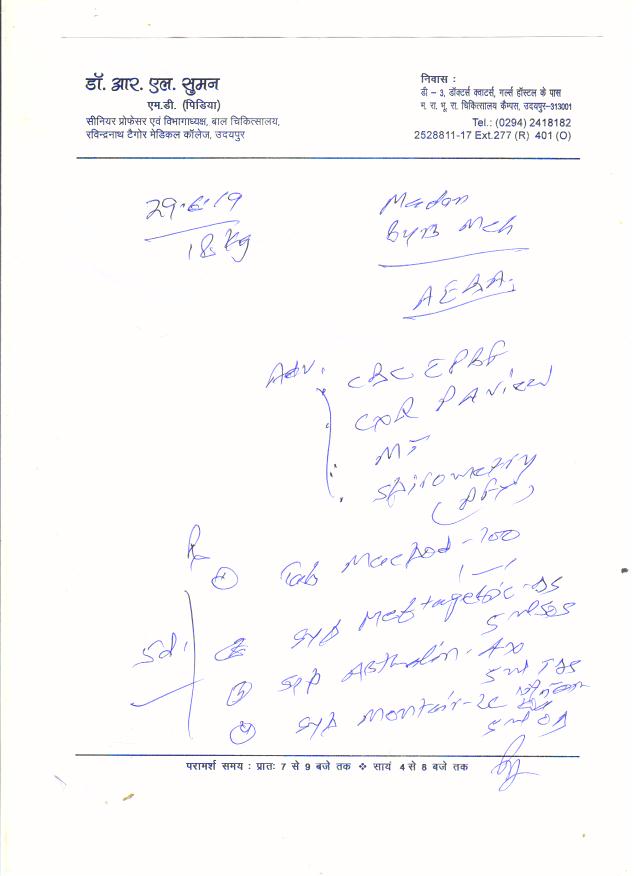 डॉ. आर. एल. सुमन
एम.डी. (पिडिया)
सीनियर प्रोफेसर एवं विभागाध्यक्ष, बाल चिकित्सालय,
रविन्द्रनाथ टैगोर मेडिकल कॉलेज, उदयपुर
निवास :
डी – 3, डॉक्टर्स क्वाटर्स, गर्ल्स हॉस्टल के पास
म. रा. भू. रा. चिकित्सालय कैम्पस, उदयपुर–313001
Tel.: (0294) 2418182
2528811-17 Ext.277 (R) 401 (O)
29.6.19
18 Kg
Madan
8y Mch
Adv.
CBC
CXR PA View
MT
Spirometry
(PFT)
Rx
① Tab Macpod-100
5d.
② Syp Meftagesic-DS
5 ml SOS
③ Syp Asthalin-AX
5 ml TDS
④ Syp Montair-LC
5 ml OD
परामर्श समय : प्रातः 7 से 9 बजे तक ❖ सायं 4 से 8 बजे तक